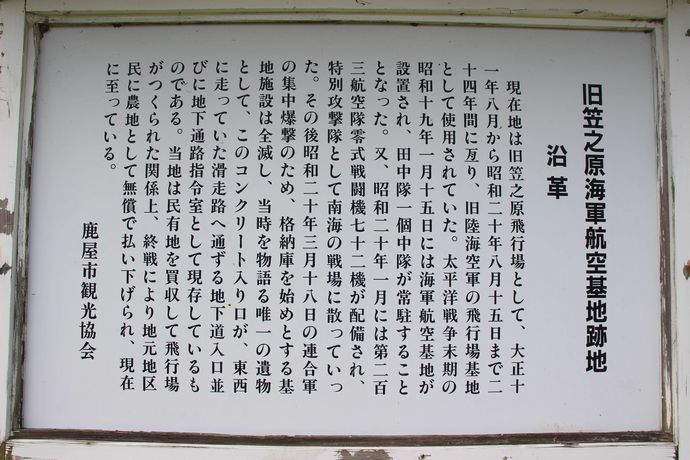 旧笠之原海軍航空基地跡地
沿革
現在地は旧笠之原飛行場として、大正十
一年八月から昭和二十年八月十五日まで二
十四年間に亙り、旧陸海空軍の飛行場基地
として使用されていた。太平洋戦争末期の
昭和十九年一月十五日には海軍航空基地が
設置され、田中隊一個中隊が常駐すること
となった。又、昭和二十年一月には第二百
三航空隊零式戦闘機七十二機が配備され、
特別攻撃隊として南海の戦場に散っていっ
た。その後昭和二十年三月十八日の連合軍
の集中爆撃のため、格納庫を始めとする基
地施設は全滅し、当時を物語る唯一の遺物
として、このコンクリート入り口が、東西
に走っていた滑走路へ通ずる地下道入口並
びに地下通路指令室として現存しているも
のである。当地は民有地を買収して飛行場
がつくられた関係上、終戦により地元地区
民に農地として無償で払い下げられ、現在
に至っている。
鹿屋市観光協会